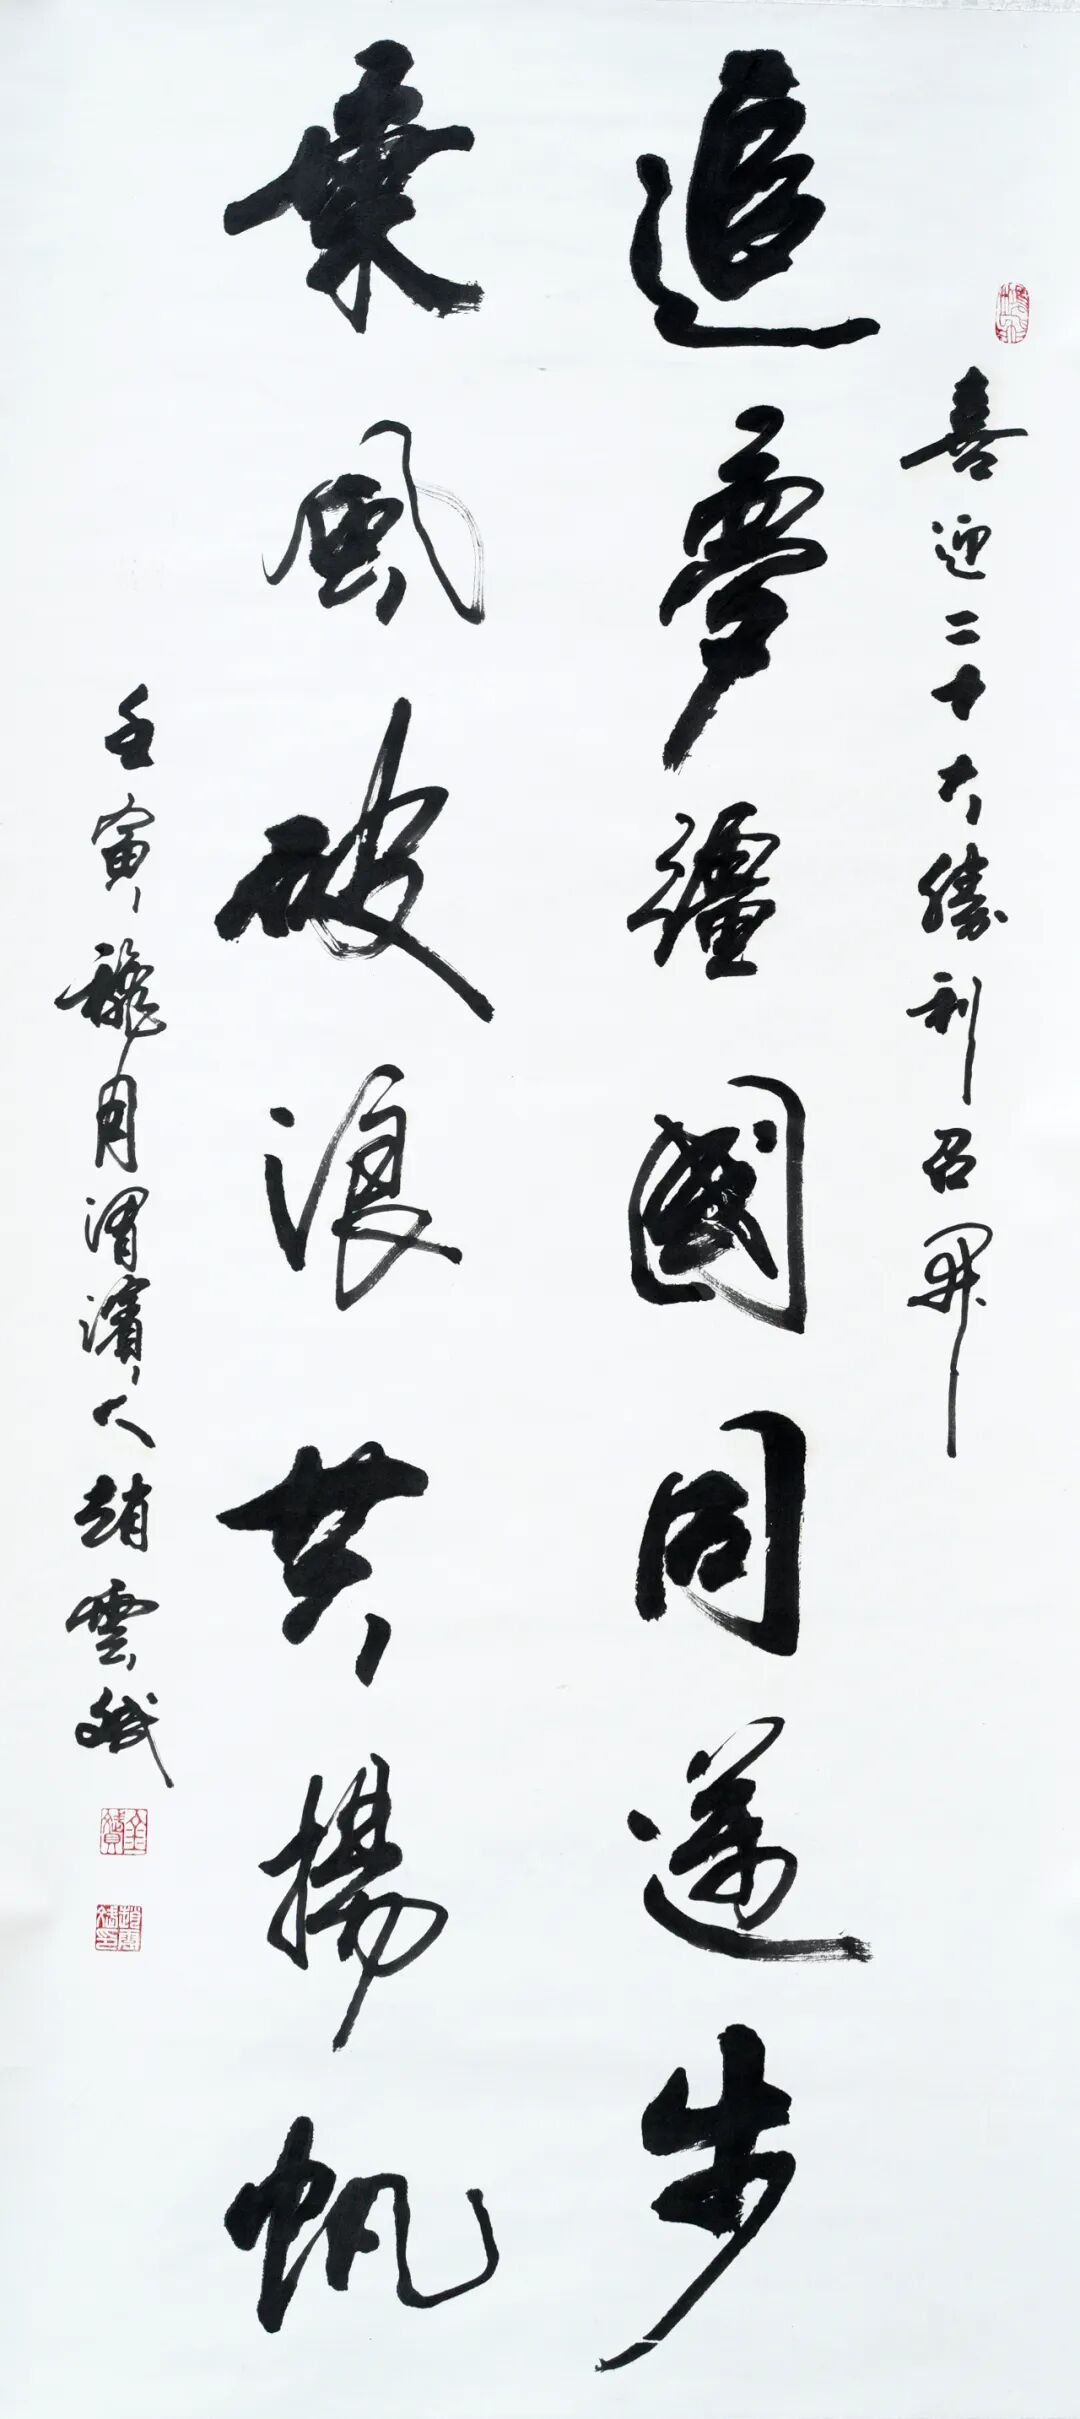 喜迎二十大勝利召開
追夢彊國同邁步
乘風破浪共揚帆
壬寅龝月渭濱人趙雲斌